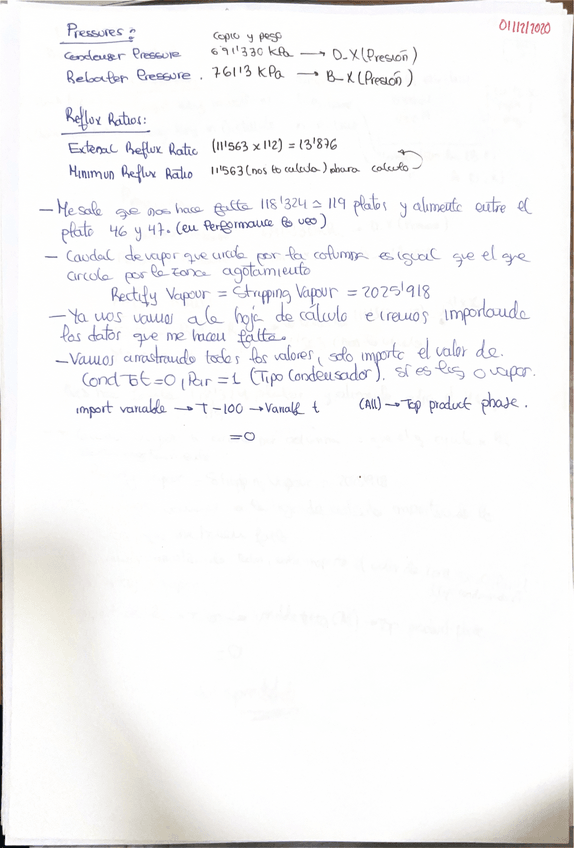 01/12/2020
Pressures:
copio y pego
Condenser Pressure 691'330 KPa → D-X (Presión)
Reboiler Pressure. 761'13 KPa → B-X (Presión)
Reflux Ratios:
External Reflux Ratio (11'563 x 1'2) = 13'876
Minimun Reflux Ratio 11'563 (nos lo calcula) para calculo
- Me sale que nos hace falta 118'324 ≃ 119 platos y alimento entre el
plato 46 y 47. (en Performance lo veo)
- Caudal de vapor que circula por la columna es igual que el que
circula por la zona agotamiento
Rectify Vapour = Stripping Vapour = 2025'918
- Ya nos vamos a la hoja de cálculo e iremos importando
los datos que me hacen falta.
- Vamos arrastrando todos los valores, solo importo el valor de
Cond Tot = 0, Par = 1 (Tipo Condensador). Si es liq o vapor.
import variable → T-100 → Variable t (All) → Top product phase.
= 0